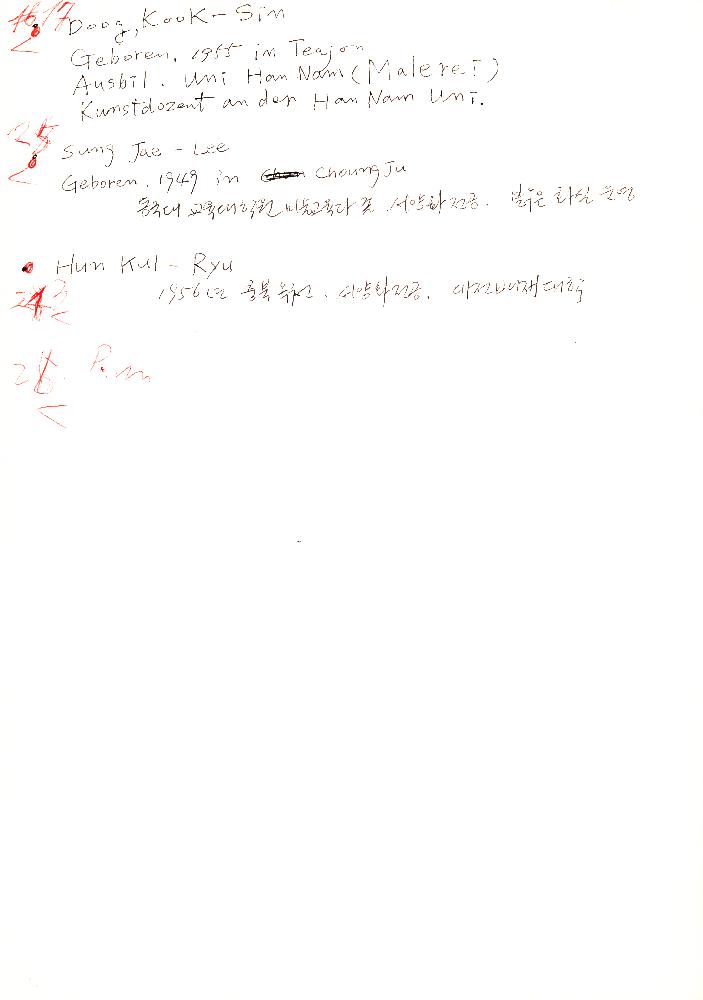 17 Doog, Kook - Sin
Geboren. 1955 in Teajon
Ausbil. Uni Han Nam (Malerei)
Kunstdozent an der Han Nam Uni.
Sung Jae - Lee
Geboren. 1949 in Choung Ju
동국대 교육대학원 미술교육과 졸 서양화 전공. 붉은 화실 운영
Hun Kul - Ryu
1956년 충북 옥천. 서양화전공. 대전배재대학